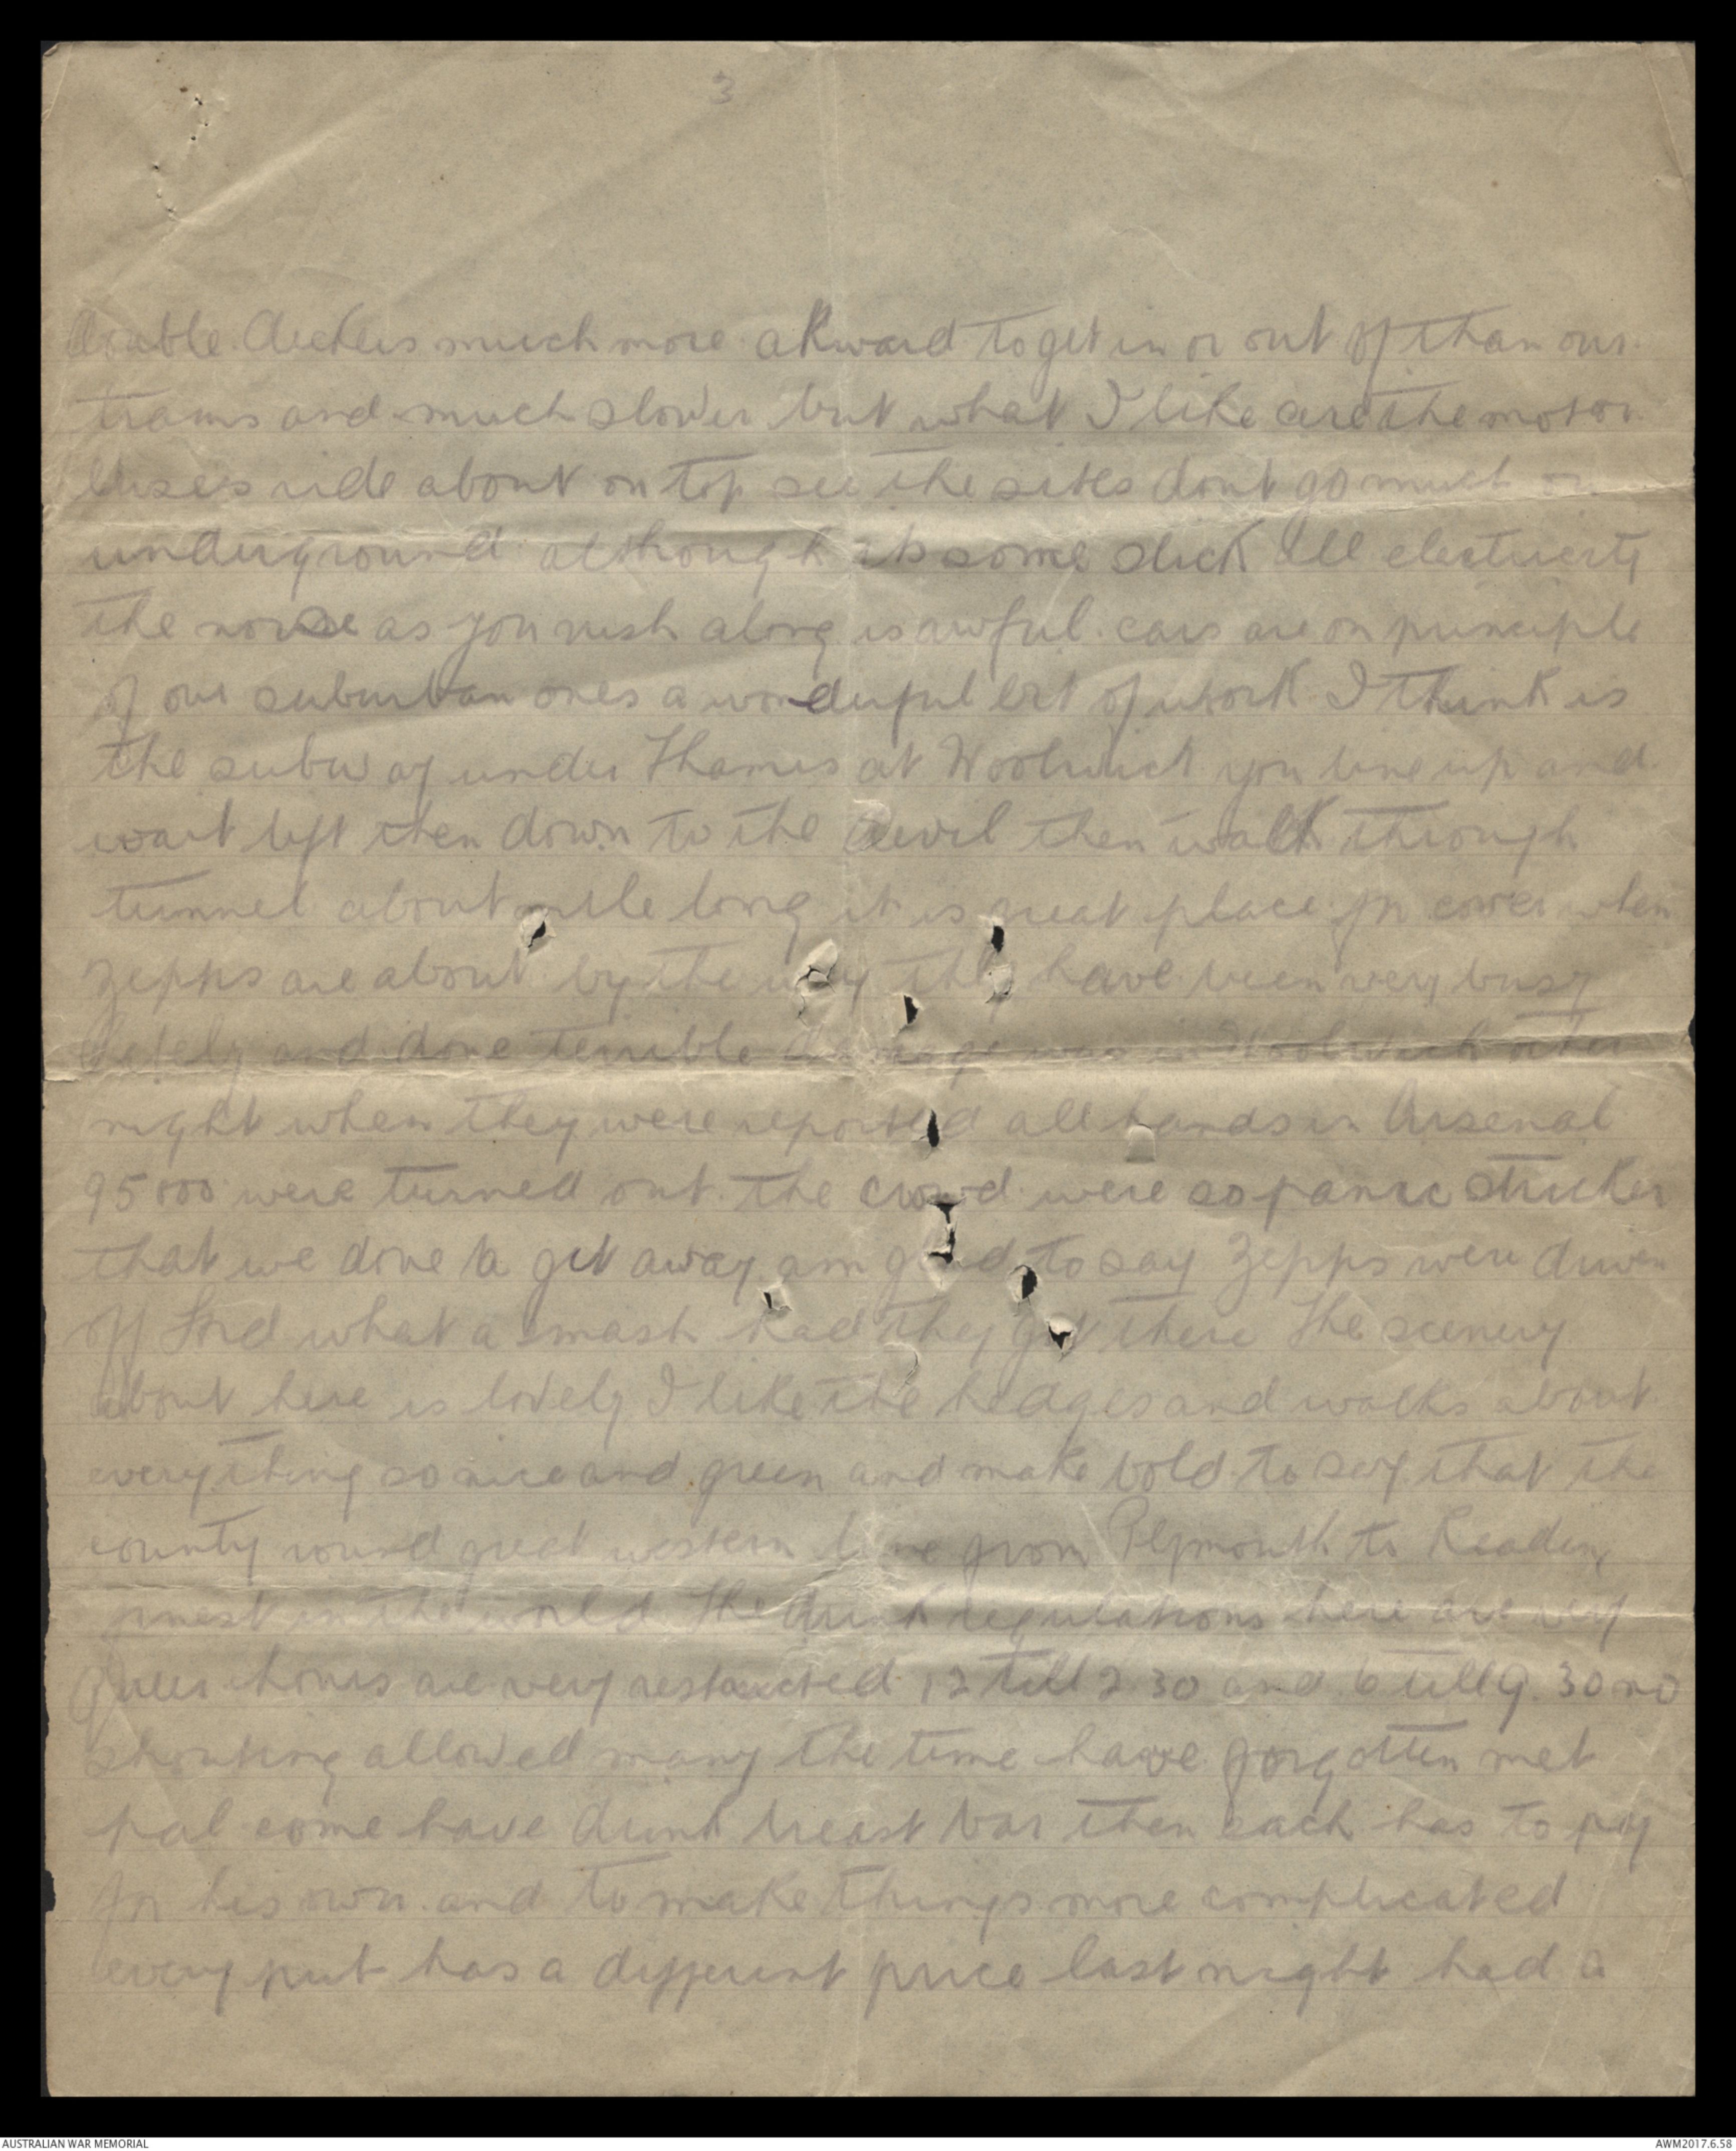 3
double deckers much more akward to get in or out of than our
trams and much slower but what I like are the motor
buses ride about on top see the sites dont go much on
underground although its some slick all electricity
the noise as you rush along is awful. cars are on principle
of our suburban ones a wonderful bit of work I think is
the subway under Thames at Woolwich you line up and
wait lift then down to the devil then walk through
tunnel about mile long it is great place for cover when
Zepps are about by the way they have been very busy
lately and done terrible damage was in Woolwich other
night when they were reported all hands in Arsenal
95000 were turned out the crowd were so panic stricken
that we done a get away am glad to say Zepps were driven
off Lord what a smash had they got there The scenery
about here is lovely I like the hedges and walks about
everything so nice and green and make bold to say that the
county round great western line from Plymouth to Reading
finest in the world. The drink regulations here are very
queer hours are very restricted 12 till 2.30 and 6 till 9.30 no
shouting allowed many the time have forgotten met
pal come have drink breast bar then each has to pay
for his own and to make things more complicated
every put has a different price last night had a
AUSTRALIAN WAR MEMORIAL
AWM2017.6.58